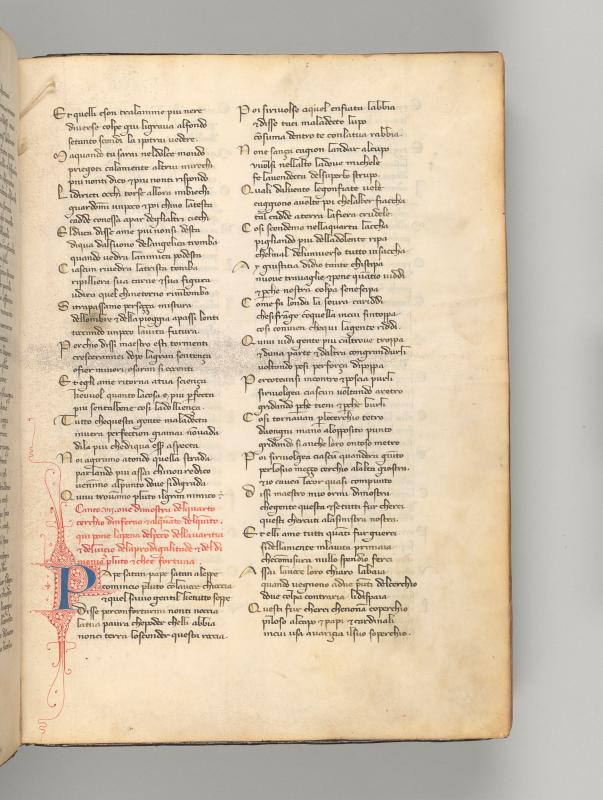 Et quelli eson tralanime piu nere
diverse colpe qui ligrava alfondo
setanto scendi la ipotrai vedere.
Ma quando tu sarai neldolce mondo
priegoti calamente altrui mirechi
piu nonti dico et piu nonti rispondo
Lidiricti occhi torse allora inbiechi
guardomi unpoco et poi chino latesta
cadde conessa apar deglialtri ciechi
El duca disse ame piu nonsi desta
diqua dalsuono delangelica tromba
quando vedra lanimica podesta
Ciascun rivedra latrista tomba
ripigliera sua carne et sua figura
udira quel chinetterno rimbomba
Si trapassamo persozza mistura
dellombre et della pioggia apassi lenti
toccando unpoco lavita futura.
Perchio dissi maestro esti tormenti
cresceranno dopo lagran sentenza
ofier minori osaran si cocenti
Et egli ame ritorna atua scienza
chevuol quanto lacosa e piu perfecta
piu sentalbene cosi ladoglienza.
Tutto chequesta gente maladecta
invera perfection giamai nonvada
dila piu chediqua esser aspecta
Noi agiramo atondo quella strada
parlando piu assai chinonridico
venimo alpunto dove sidigrada
Quivi trovamo pluto ilgran nimico :
Canto .vii. ove dimostra delquarto
cerchio dinferno et alquanto delquinto.
qui pone lapena delpeccato dellavaritia
et deluicio delaprodigalitade et deldi
monio pluto et che e fortuna
Pape satan pape satan aleppe
comincio pluto colavoce chioccia
et quel savio gentil chetutto seppe
Disse perconfortarmi nonti noccia
latua paura chepoder chelli abbia
nonci terra loscender questa roccia.
Poi sirivolse aquel enfiata labbia
et disse taci maladecto lupo
consuma dentro te conlatua rabbia.
None sanza cagion landar alcupo
vuolsi nellalto ladove michele
fe lavendecta delsuperbo strupo.
Quali dalvento legonfiate vele
caggiono avolte poi chelalber fiaccha
tal cadde aterra lafiera crudele.
Cosi scendemo nellaquarta laccha
pigliando piu delladolente ripa
chelmal deluniverso tutto insaccha
Ay giustitia didio tante chistipa
nuove travaglie et pene quante viddi
et perche nostra colpa senescipa
Come fa londa la sovra cariddi
chesifrange conquella incui sintoppa
cosi convien chequi lagente riddi.
Quivi vidi gente piu caltrove troppa
et duna parte et daltra congrandurli
voltando pesi perforza dipoppa
Percoteansi incontro et poscia purli
sirivolgea ciascun voltando aretro
gridando perche tieni et perche burli
Cosi tornavan perlocerchio tetro
daongni mano alopposito punto
gridando si anche loro ontoso metro
Poi sirivolgea ciascun quandera giunto
perlosuo mezzo cerchio alaltra giostra.
et io cavea locor quasi compunto
Dissi maestro mio ormi dimostra
chegente questa et setutti fur cherci
questi chercuti alasinistra nostra.
Et elli ame tutti quati fur guerci
sidellamente nlavita primaia
checonmisura nullo spendio ferci
Assai lavoce loro chiaro labbaia
quando vegnono adue punti delcerchio
dove colpa contraria lidispaia
Questi fur cherci chenonan coperchio
piloso alcapo et papi et cardinali
incui usa avaritia ilsuo soperchio.